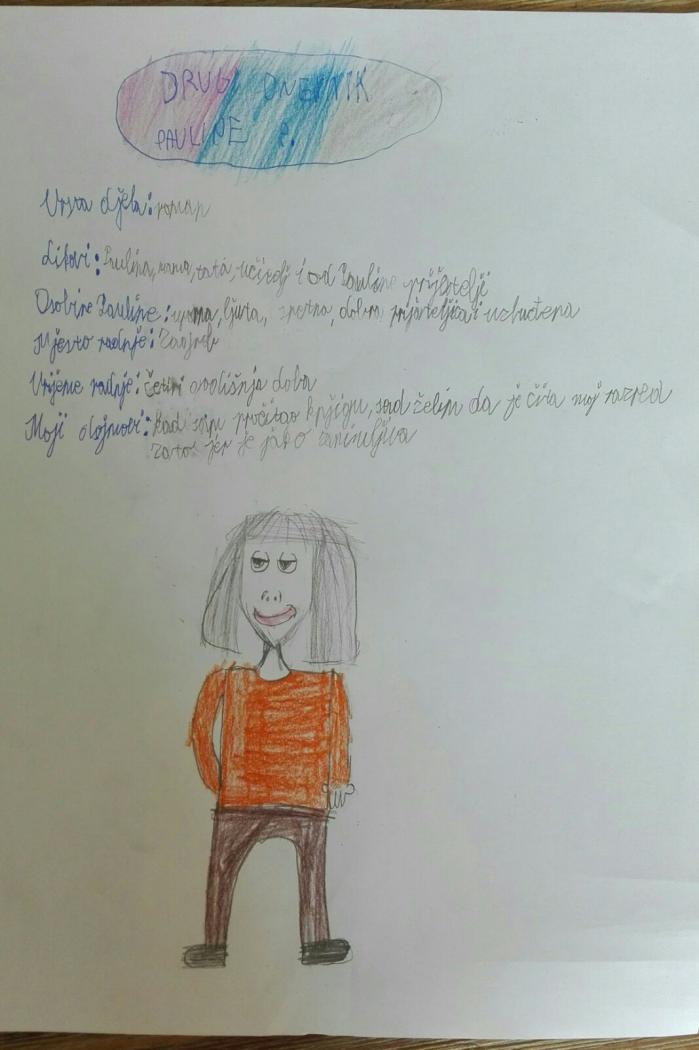 DRUGI DNEVNIK
PAULINE P.
Vrsta djela: roman
Likovi: Paulina, mama, tata, učitelj i od Pauline prijatelji
Osobine Pauline: uporna, ljuta, spretna, dobra prijateljica i uzbuđena
Mjesto radnje: Zagreb
Vrijeme radnje: četiri godišnja doba
Moji dojmovi: kad sam pročitao knjigu, sad želim da je čita moj razred
zato jer je jako zanimljiva